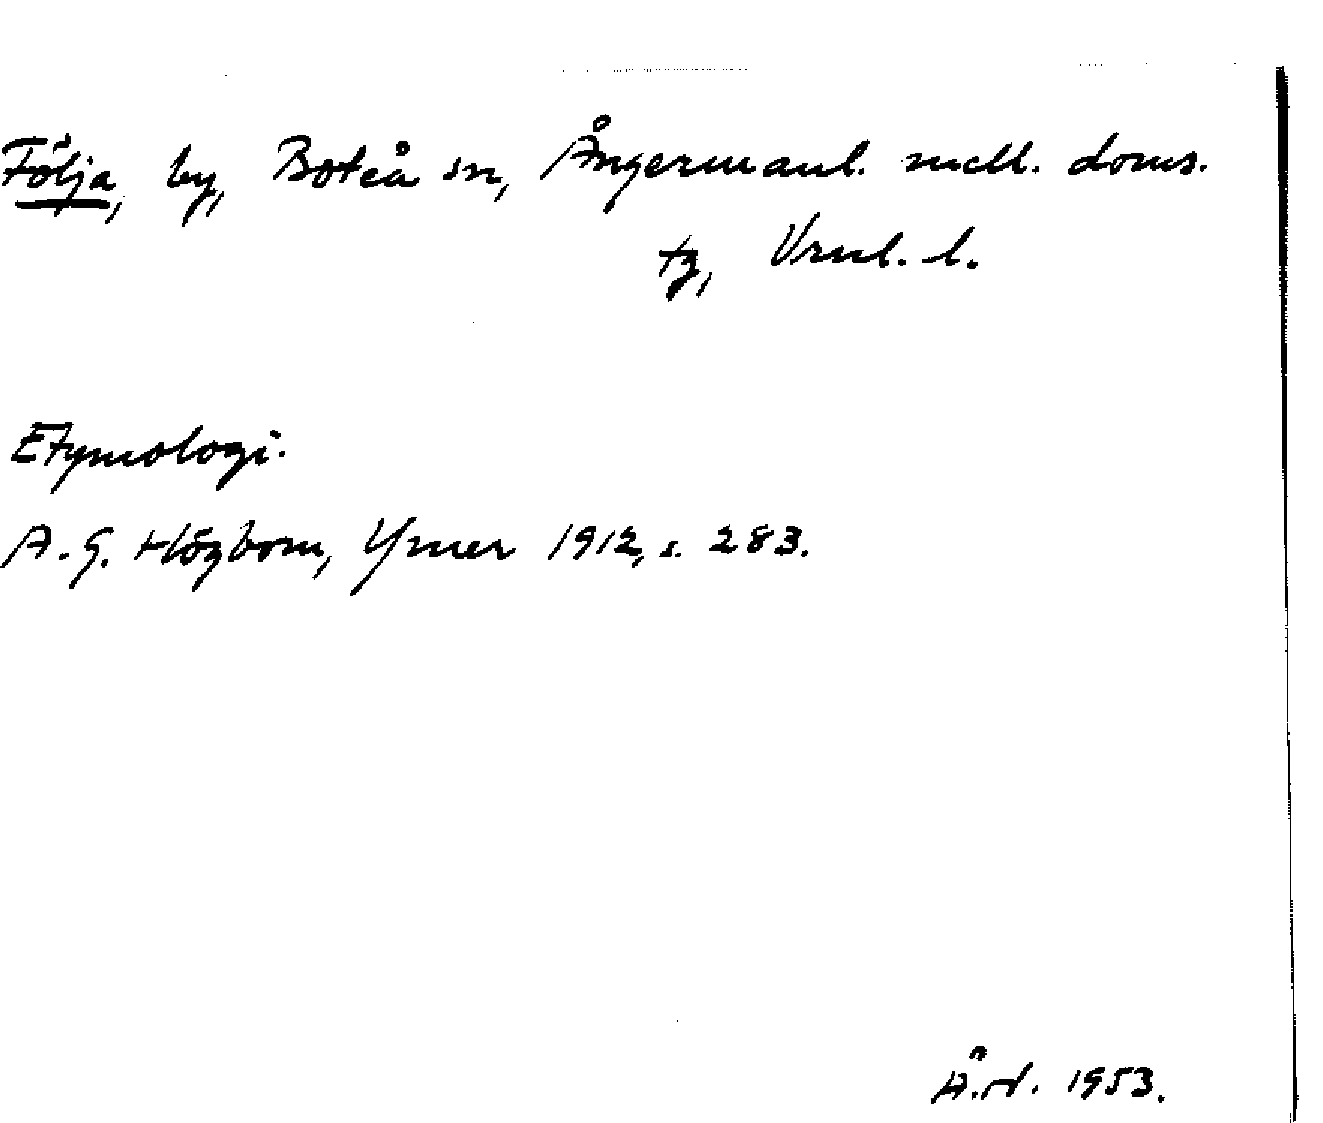 Följa, by, Boteå sn, Ångermanl. mell. doms.
tg, Vrnl. l.
Etymologi.
A. G. Högbom, Ymer 1912, s. 283.
1953.